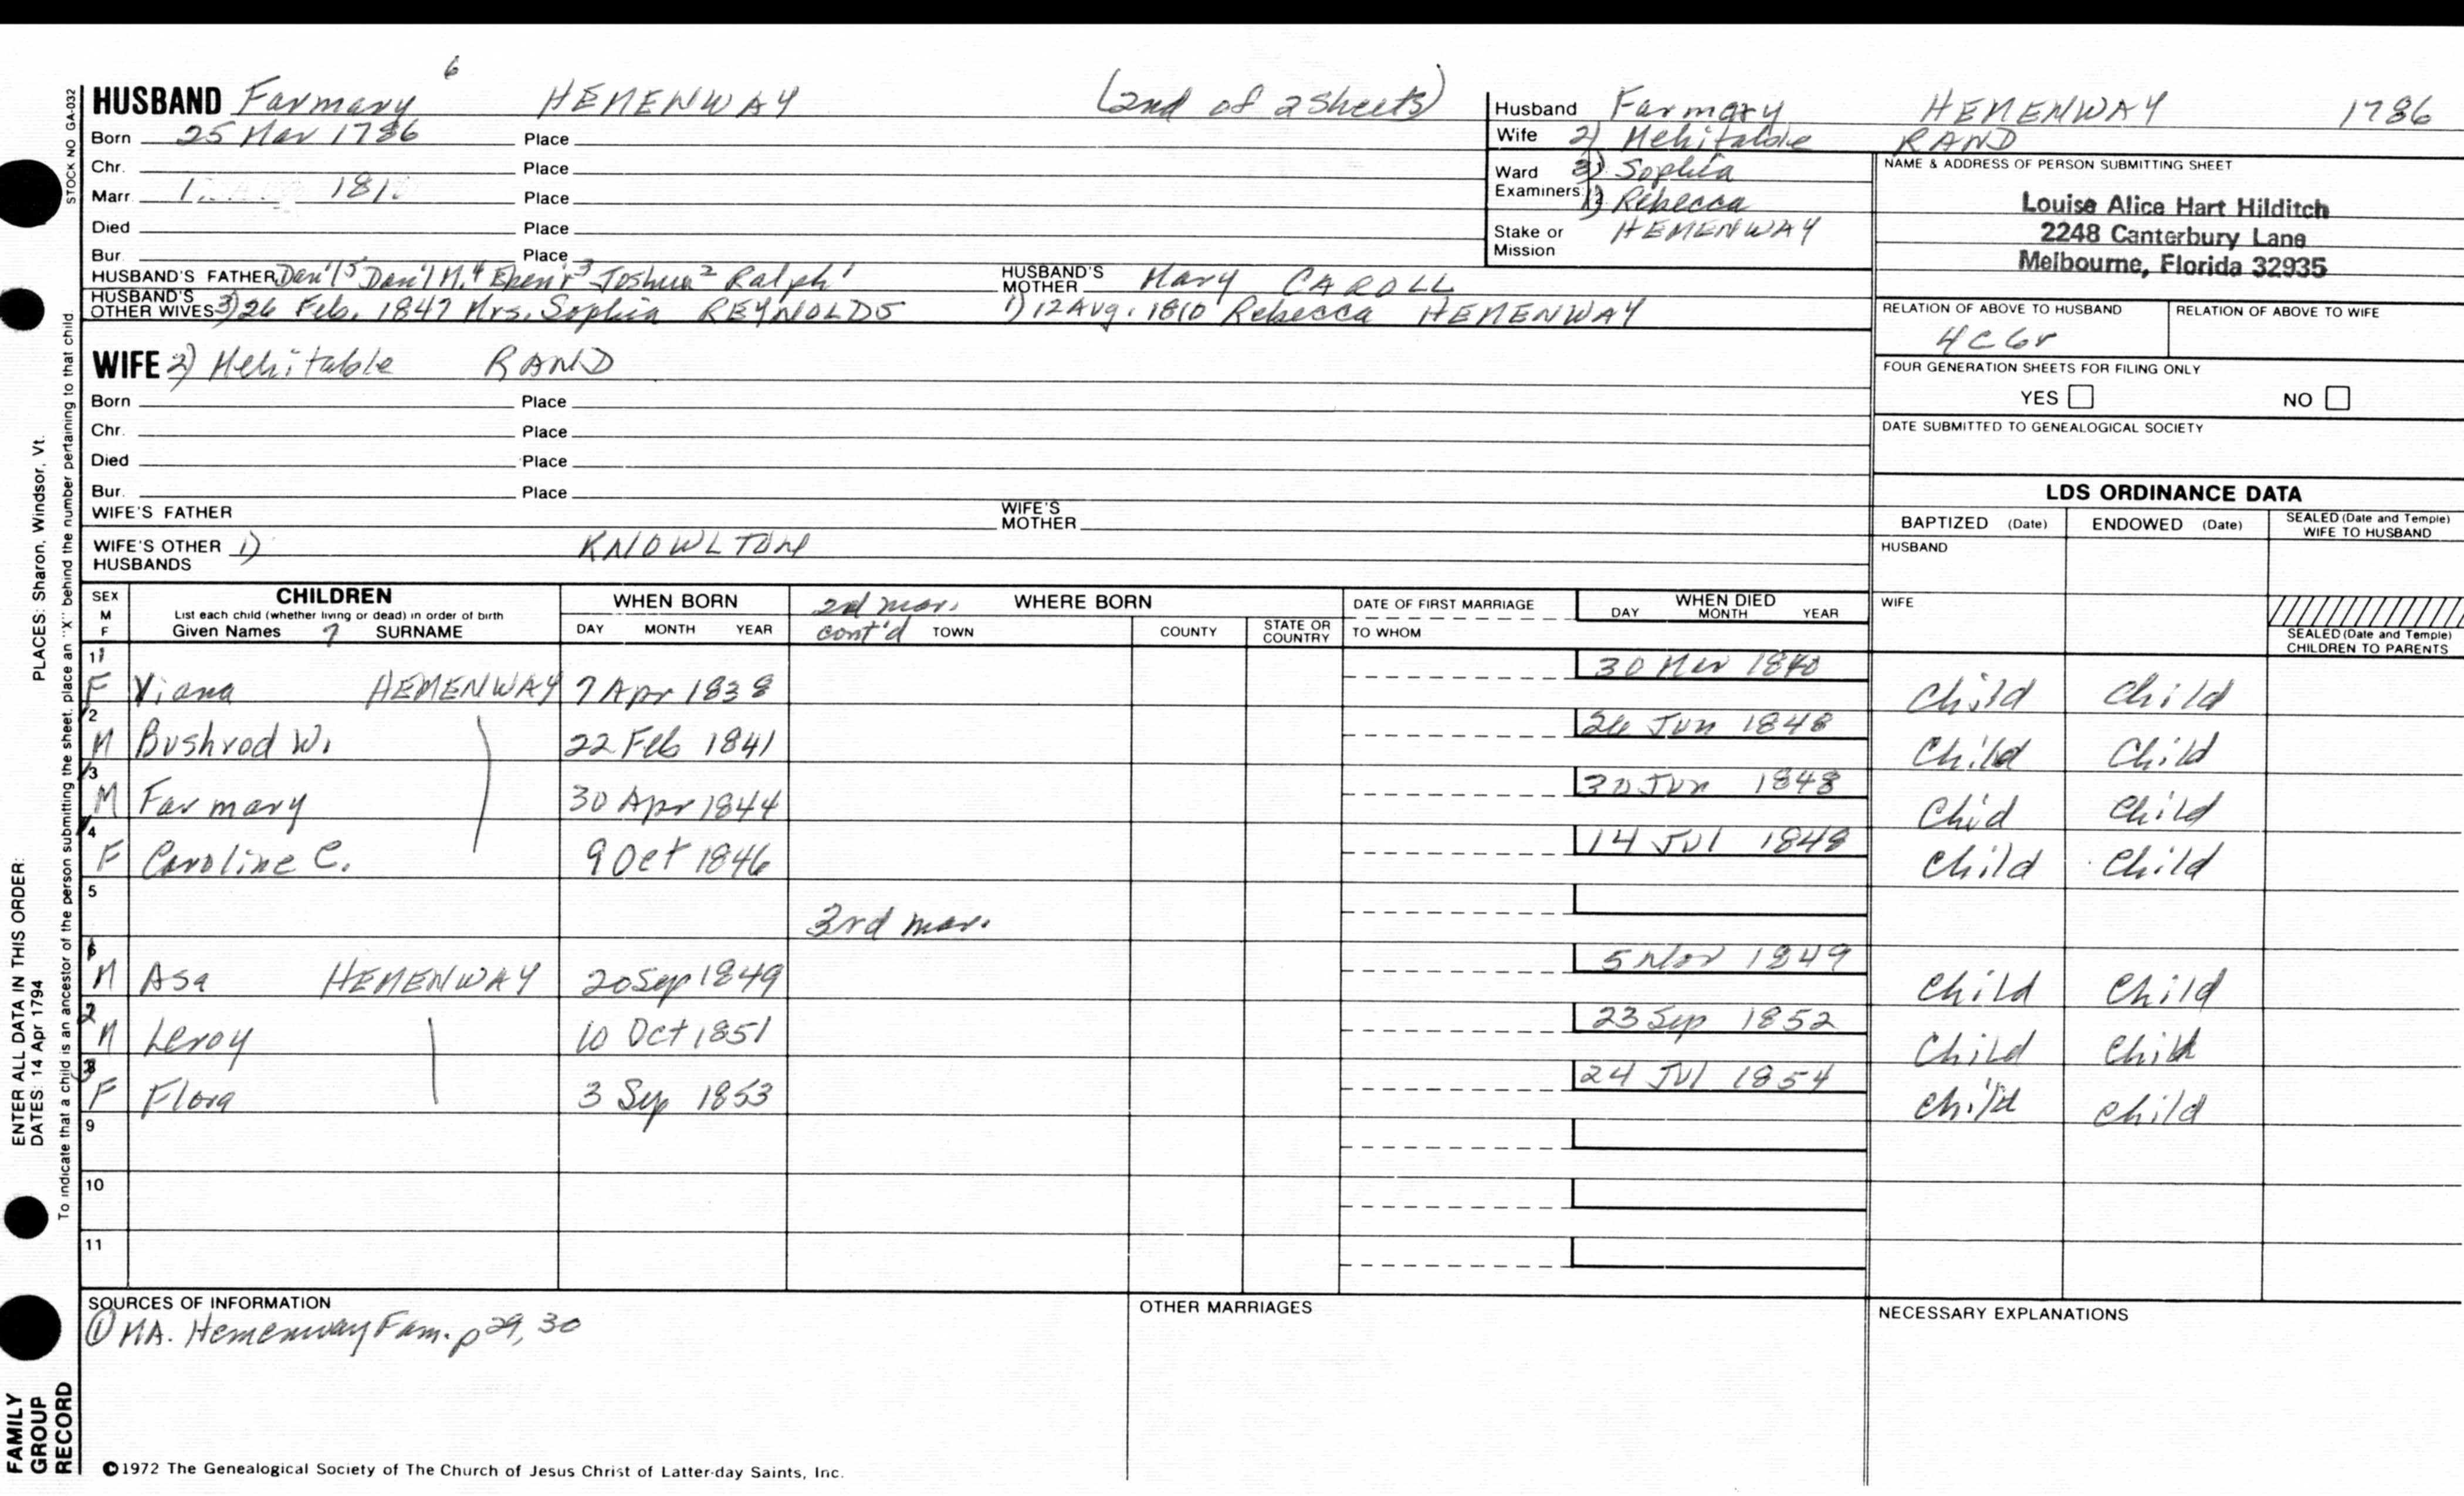 6
HUSBAND Farmary HEMENWAY (2nd of 2 sheets)
Born 25 Mar 1786 Place
Chr. Place
Marr. 181 Place
Died Place
Bur. Place
HUSBAND'S FATHER Dan'l 5 Dan'l M. 4 Eben'r 3 Joshua 2 Ralph 1 HUSBAND'S MOTHER Mary CAROLL
HUSBAND'S OTHER WIVES 3) 26 Feb. 1847 Mrs. Sophia REYNOLDS 1) 12 Aug. 1810 Rebecca HEMENWAY
Husband Farmary HEMENWAY 1786
Wife 2) Mehitable RAND
Ward 3) Sophia
Examiners 1) Rebecca
Stake or Mission HEMENWAY
NAME & ADDRESS OF PERSON SUBMITTING SHEET
Louise Alice Hart Hilditch
2248 Canterbury Lane
Melbourne, Florida 32935
RELATION OF ABOVE TO HUSBAND RELATION OF ABOVE TO WIFE
4C6r
FOUR GENERATION SHEETS FOR FILING ONLY
YES NO
DATE SUBMITTED TO GENEALOGICAL SOCIETY
WIFE 2) Mehitable RAND
Born Place
Chr. Place
Died Place
Bur. Place
WIFE'S FATHER WIFE'S MOTHER
WIFE'S OTHER HUSBANDS 1) KNOWLTON
LDS ORDINANCE DATA
BAPTIZED (Date) ENDOWED (Date) SEALED (Date and Temple) WIFE TO HUSBAND
HUSBAND
WIFE
SEALED (Date and Temple) CHILDREN TO PARENTS
SEX M F
CHILDREN
List each child (whether living or dead) in order of birth
Given Names 7 SURNAME
WHEN BORN
DAY MONTH YEAR
2nd mar. cont'd
WHERE BORN
TOWN COUNTY STATE OR COUNTRY
DATE OF FIRST MARRIAGE
TO WHOM
WHEN DIED
DAY MONTH YEAR
1 F Viana HEMENWAY 7 Apr 1838 30 Mar 1840 Child Child
2 M Bushrod W. 22 Feb 1841 26 Jun 1848 Child Child
3 M Farmary 30 Apr 1844 30 Jun 1848 Chid Child
4 F Caroline C. 9 Oct 1846 14 Jul 1848 Child Child
5 3rd mar.
6 M Asa HEMENWAY 20 Sep 1849 5 Nov 1849 Child Child
2 M Leroy 10 Oct 1851 23 Sep 1852 Child Child
3 F Flora 3 Sep 1853 24 Jul 1854 Child Child
9
10
11
SOURCES OF INFORMATION
① MA. Hemenway Fam. p 29, 30
OTHER MARRIAGES
NECESSARY EXPLANATIONS
©1972 The Genealogical Society of The Church of Jesus Christ of Latter-day Saints, Inc.
STOCK NO GA-032
To indicate that a child is an ancestor of the person submitting the sheet, place an "X" behind the number pertaining to that child
PLACES: Sharon, Windsor, Vt.
ENTER ALL DATA IN THIS ORDER:
DATES: 14 Apr 1794
FAMILY GROUP RECORD